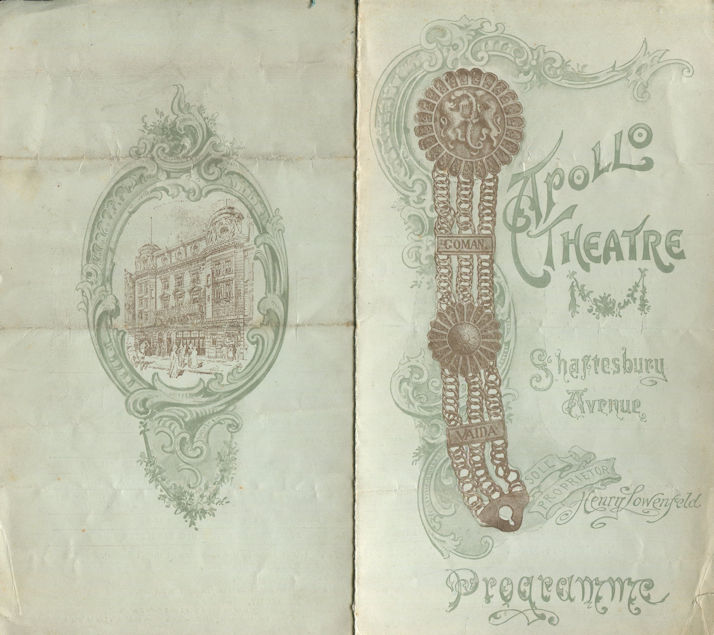 APOLLO
THEATRE
GOMAN.
Shaftesbury
Avenue,
VAIDA
SOLE
PROPRIETOR
Henry Lowenfeld.
Programme